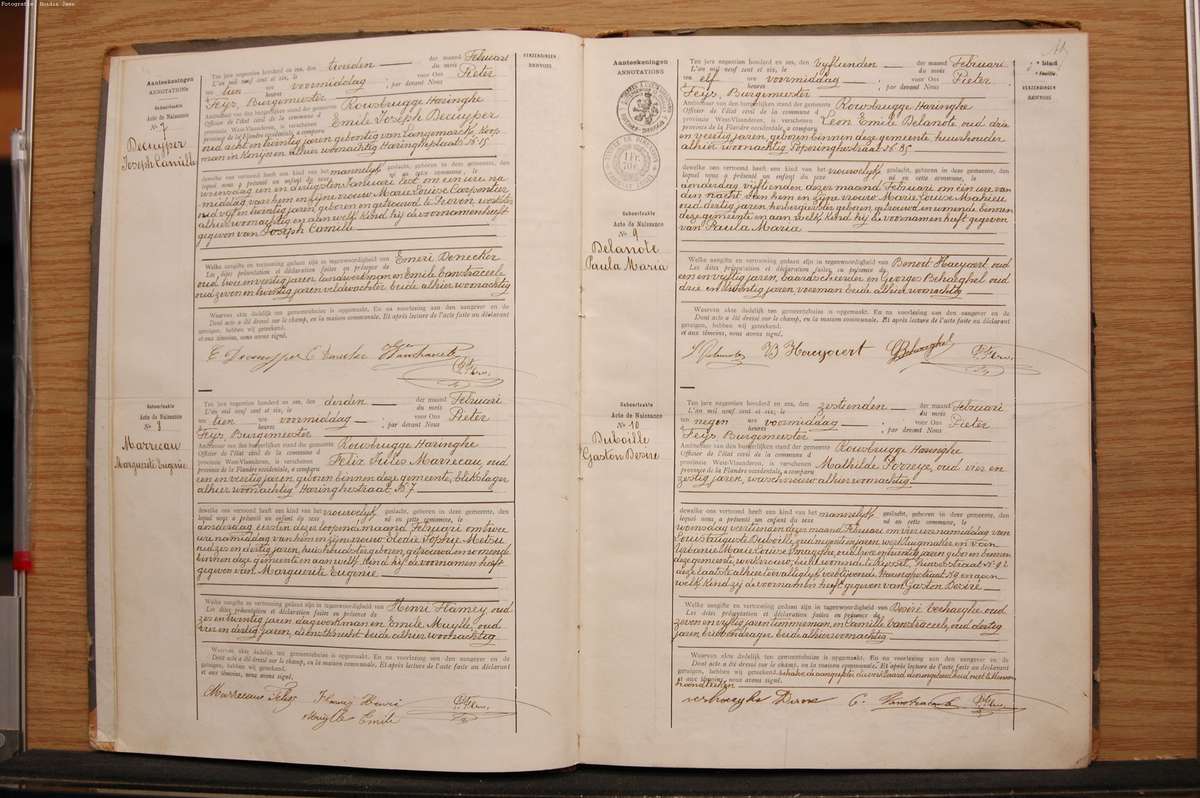 Fotografie: Houdia Jese
Aanteekeningen
ANNOTATIONS
Geboorteakte
Acte de Naissance
№ 7
Decuyper
Joseph Camille
VERZENDINGEN
RENVOIS
Ten jare negentien honderd en zes, den tweeden der maand Februari
L'an mil neuf cent et six, le du mois
ten tien ure voormiddag ; voor Ons Pieter
heures par devant Nous
Feys, Burgemeester
Ambtenaar van den burgerlijken stand der gemeente Rousbrugge Haringhe
Officier de l'état civil de la commune d
provincie West-Vlaanderen, is verschenen Emile Joseph Decuyper
province de la Flandre occidentale, a comparu
oud acht en twintig jaren geboortig van Langemarck, koop-
man in Konijnen alhier woonachtig Haringheplaats № 15
dewelke ons vertoond heeft een kind van het mannelijk geslacht, geboren in deze gemeente, den
lequel nous a présenté un enfant du sexe né en cette commune, le
woensdag een en dertigsten Januari laatst om een ure na-
middag van hem en zijne vrouw Marie Louise Carpentier
oud vijf en twintig jaren geboren en getrouwd te Proven, werkster
alhier woonachtig en aan welk kind hij de voornamen heeft
gegeven van Joseph Camille
Welke aangifte en vertooning gedaan zijn in tegenwoordigheid van Emeri Denecker
Les dites présentation et déclaration faites en présence de
oud twee en veertig jaren, landwerksman en Emile Vanstraceele
oud zeven en twintig jaren veldwachter beide alhier woonachtig
Waarvan akte dadelijk ten gemeentehuize is opgemaakt. En na voorlezing aan den aangever en de
Dont acte a été dressé sur le champ, en la maison communale. Et après lecture de l'acte faite au déclarant
getuigen, hebben wij geteekend.
et aux témoins, nous avons signé.
Geboorteakte
Acte de Naissance
№ 8
Marrecau
Marguerite Eugenie
Ten jare negentien honderd en zes, den derden der maand Februari
L'an mil neuf cent et six, le du mois
ten tien ure voormiddag ; voor Ons Pieter
heures par devant Nous
Feys, Burgemeester
Ambtenaar van den burgerlijken stand der gemeente Rousbrugge Haringhe
Officier de l'état civil de la commune d
provincie West-Vlaanderen, is verschenen Felix Jules Marrecau, oud
province de la Flandre occidentale, a comparu
een en veertig jaren geboren binnen deze gemeente, blekslager
alhier woonachtig Haringhestraat № 7
dewelke ons vertoond heeft een kind van het vrouwelijk geslacht, geboren in deze gemeente, den
lequel nous a présenté un enfant du sexe né en cette commune, le
donderdag eersten dezer loopende maand Februari om twee
ure namiddag van hem en zijne vrouw Elodie Sophie Metsu
oud zes en dertig jaren, huishoudster geboren, getrouwd en wonende
binnen deze gemeente en aan welk kind hij de voornamen heeft
gegeven van Marguerite Eugenie
Welke aangifte en vertooning gedaan zijn in tegenwoordigheid van Henri Hamey oud
Les dites présentation et déclaration faites en présence de
zes en twintig jaren, dagwerkman en Emile Muylle, oud
vier en dertig jaren, dienstknecht beide alhier woonachtig
Waarvan akte dadelijk ten gemeentehuize is opgemaakt. En na voorlezing aan den aangever en de
Dont acte a été dressé sur le champ, en la maison communale. Et après lecture de l'acte faite au déclarant
getuigen, hebben wij geteekend.
et aux témoins, nous avons signé.
Marrecau Felix Hamey Henri
Muylle Emile
Aanteekeningen
ANNOTATIONS
Geboorteakte
Acte de Naissance
№ 9
Delanote
Paula Maria
VERZENDINGEN
RENVOIS
Ten jare negentien honderd en zes, den vijftienden der maand Februari
L'an mil neuf cent et six, le du mois
ten elf ure voormiddag ; voor Ons Pieter
heures par devant Nous
Feys, Burgemeester
Ambtenaar van den burgerlijken stand der gemeente Rousbrugge Haringhe
Officier de l'état civil de la commune d
provincie West-Vlaanderen, is verschenen Leon Emile Delanote oud drie
province de la Flandre occidentale, a comparu
en veertig jaren, geboren binnen deze gemeente, huurhouder
alhier woonachtig Poperinghestraat № 35
dewelke ons vertoond heeft een kind van het vrouwelijk geslacht, geboren in deze gemeente, den
lequel nous a présenté un enfant du sexe né en cette commune, le
donderdag vijftienden dezer maand Februari om één ure van
den nacht van hem en zijne vrouw Marie Louise Mahieu
oud dertig jaren, herbergierster geboren, getrouwd en wonende binnen
deze gemeente en aan welk kind hij de voornamen heeft gegeven
van Paula Maria
Welke aangifte en vertooning gedaan zijn in tegenwoordigheid van Benoit Haeyaert, oud
Les dites présentation et déclaration faites en présence de
een en vijftig jaren, baardscheerder en Georges Behaeghel oud
drie en twintig jaren, voerman beide alhier woonachtig
Waarvan akte dadelijk ten gemeentehuize is opgemaakt. En na voorlezing aan den aangever en de
Dont acte a été dressé sur le champ, en la maison communale. Et après lecture de l'acte faite au déclarant
getuigen, hebben wij geteekend.
et aux témoins, nous avons signé.
Geboorteakte
Acte de Naissance
№ 10
Duboille
Gaston Desiré
Ten jare negentien honderd en zes, den zestienden der maand Februari
L'an mil neuf cent et six, le du mois
ten negen ure voormiddag ; voor Ons Pieter
heures par devant Nous
Feys, Burgemeester
Ambtenaar van den burgerlijken stand der gemeente Rousbrugge Haringhe
Officier de l'état civil de la commune d
provincie West-Vlaanderen, is verschenen Mathilde Porreye, oud vier en
province de la Flandre occidentale, a comparu
zestig jaren, vroedvrouw alhier woonachtig
dewelke ons vertoond heeft een kind van het mannelijk geslacht, geboren in deze gemeente, den
lequel nous a présenté un enfant du sexe né en cette commune, le
woensdag veertienden dezer maand Februari om vier ure namiddag van
Louis Auguste Duboille oud negen en dertig jaren, werktuigmaker en van
Urbanie Marie Louise Smagghe, oud twee en jaren geboren binnen
deze gemeente, werkvrouw, echt, wonende te Reyssel,
deze laatste alhier toevalliglijk verblijvende Haringhestraat № 4 en aan
welk kind zij de voornamen heeft gegeven van Gaston Desiré
Welke aangifte en vertooning gedaan zijn in tegenwoordigheid van Desiré Verhaeghe oud
Les dites présentation et déclaration faites en présence de
zeven en vijftig jaren timmerman, en Camille Vanstraceele, oud dertig
jaren brievendrager beide alhier woonachtig
Waarvan akte dadelijk ten gemeentehuize is opgemaakt. En na voorlezing aan den aangever en de
Dont acte a été dressé sur le champ, en la maison communale. Et après lecture de l'acte faite au déclarant
getuigen, hebben wij geteekend.
et aux témoins, nous avons signé.